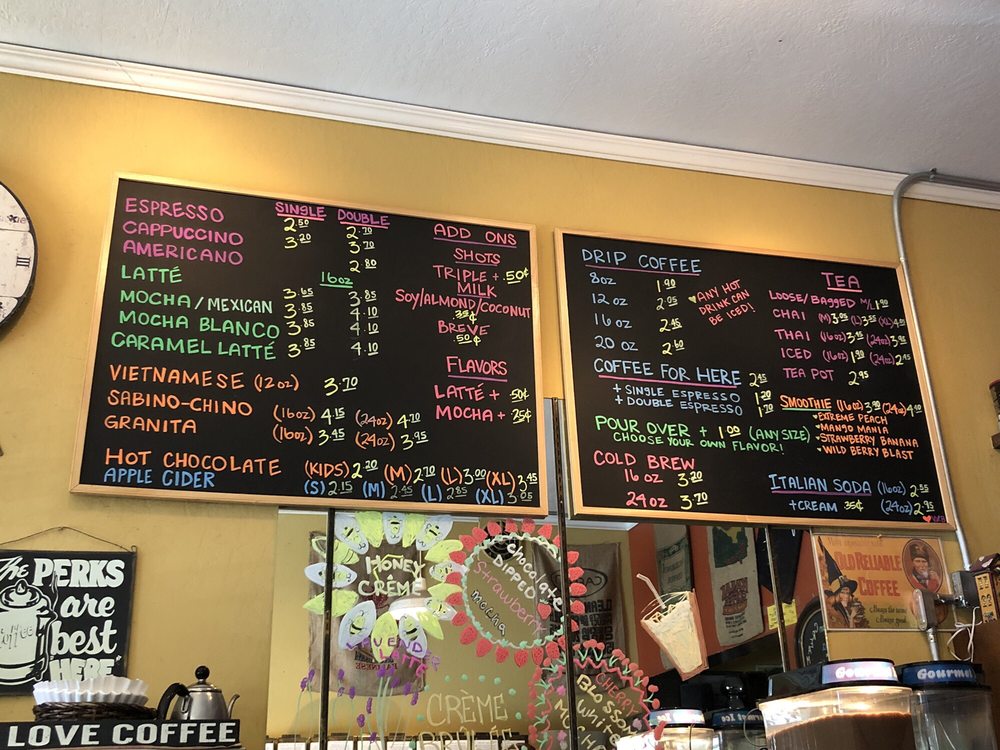 ESPRESSO SINGLE 2.50 DOUBLE 2.70
CAPPUCCINO 3.20 3.70
AMERICANO 2.80
LATTÉ 16oz 3.65 3.85
MOCHA/MEXICAN 3.85 4.10
MOCHA BLANCO 3.85 4.10
CARAMEL LATTÉ 3.85 4.10
VIETNAMESE (12oz) 3.70
SABINO-CHINO (16oz) 4.15 (24oz) 4.70
GRANITA (16oz) 3.45 (24oz) 3.95
HOT CHOCOLATE (KIDS) 2.20 (M) 2.70 (L) 3.00 (XL) 3.45
APPLE CIDER (S) 2.15 (M) 2.45 (L) 2.85 (XL) 3.05
ADD ONS
SHOTS
TRIPLE + .50¢
MILK
SOY/ALMOND/COCONUT
35¢
BREVE
50¢
FLAVORS
LATTÉ + .50¢
MOCHA + .25¢
DRIP COFFEE
8oz 1.90
12 oz 2.05
16 oz 2.45
20 oz 2.60
♥ANY HOT
DRINK CAN
BE ICED!
COFFEE FOR HERE 2.45
+ SINGLE ESPRESSO 1.20
+ DOUBLE ESPRESSO 1.70
POUR OVER + 1.00 (ANY SIZE)
CHOOSE YOUR OWN FLAVOR!
COLD BREW
16 oz 3.20
24oz 3.70
TEA
LOOSE/BAGGED M/L 1.90
CHAI (M) 3.05 (L) 3.35 (XL)
THAI (16oz) 3.45 (24oz) 3.95
ICED (16oz) 1.90 (24oz) 2.45
TEA POT 2.95
SMOOTHIE (16oz) 3.90 (24oz) 4.40
♥EXTREME PEACH
♥MANGO MANIA
♥STRAWBERRY BANANA
♥WILD BERRY BLAST
ITALIAN SODA (16oz) 2.55
+CREAM 35¢ (24oz) 2.95
The PERKS
are
best
HERE
LOVE COFFEE
HONEY
CRÈME
chocolate
DIPPED
strawberry
mocha
CRÈME
BRÛLÉE
CHERRY
BLOSSOM
White
OLD RELIABLE
COFFEE
Always the same
Always good
Gourmet
Gourmet